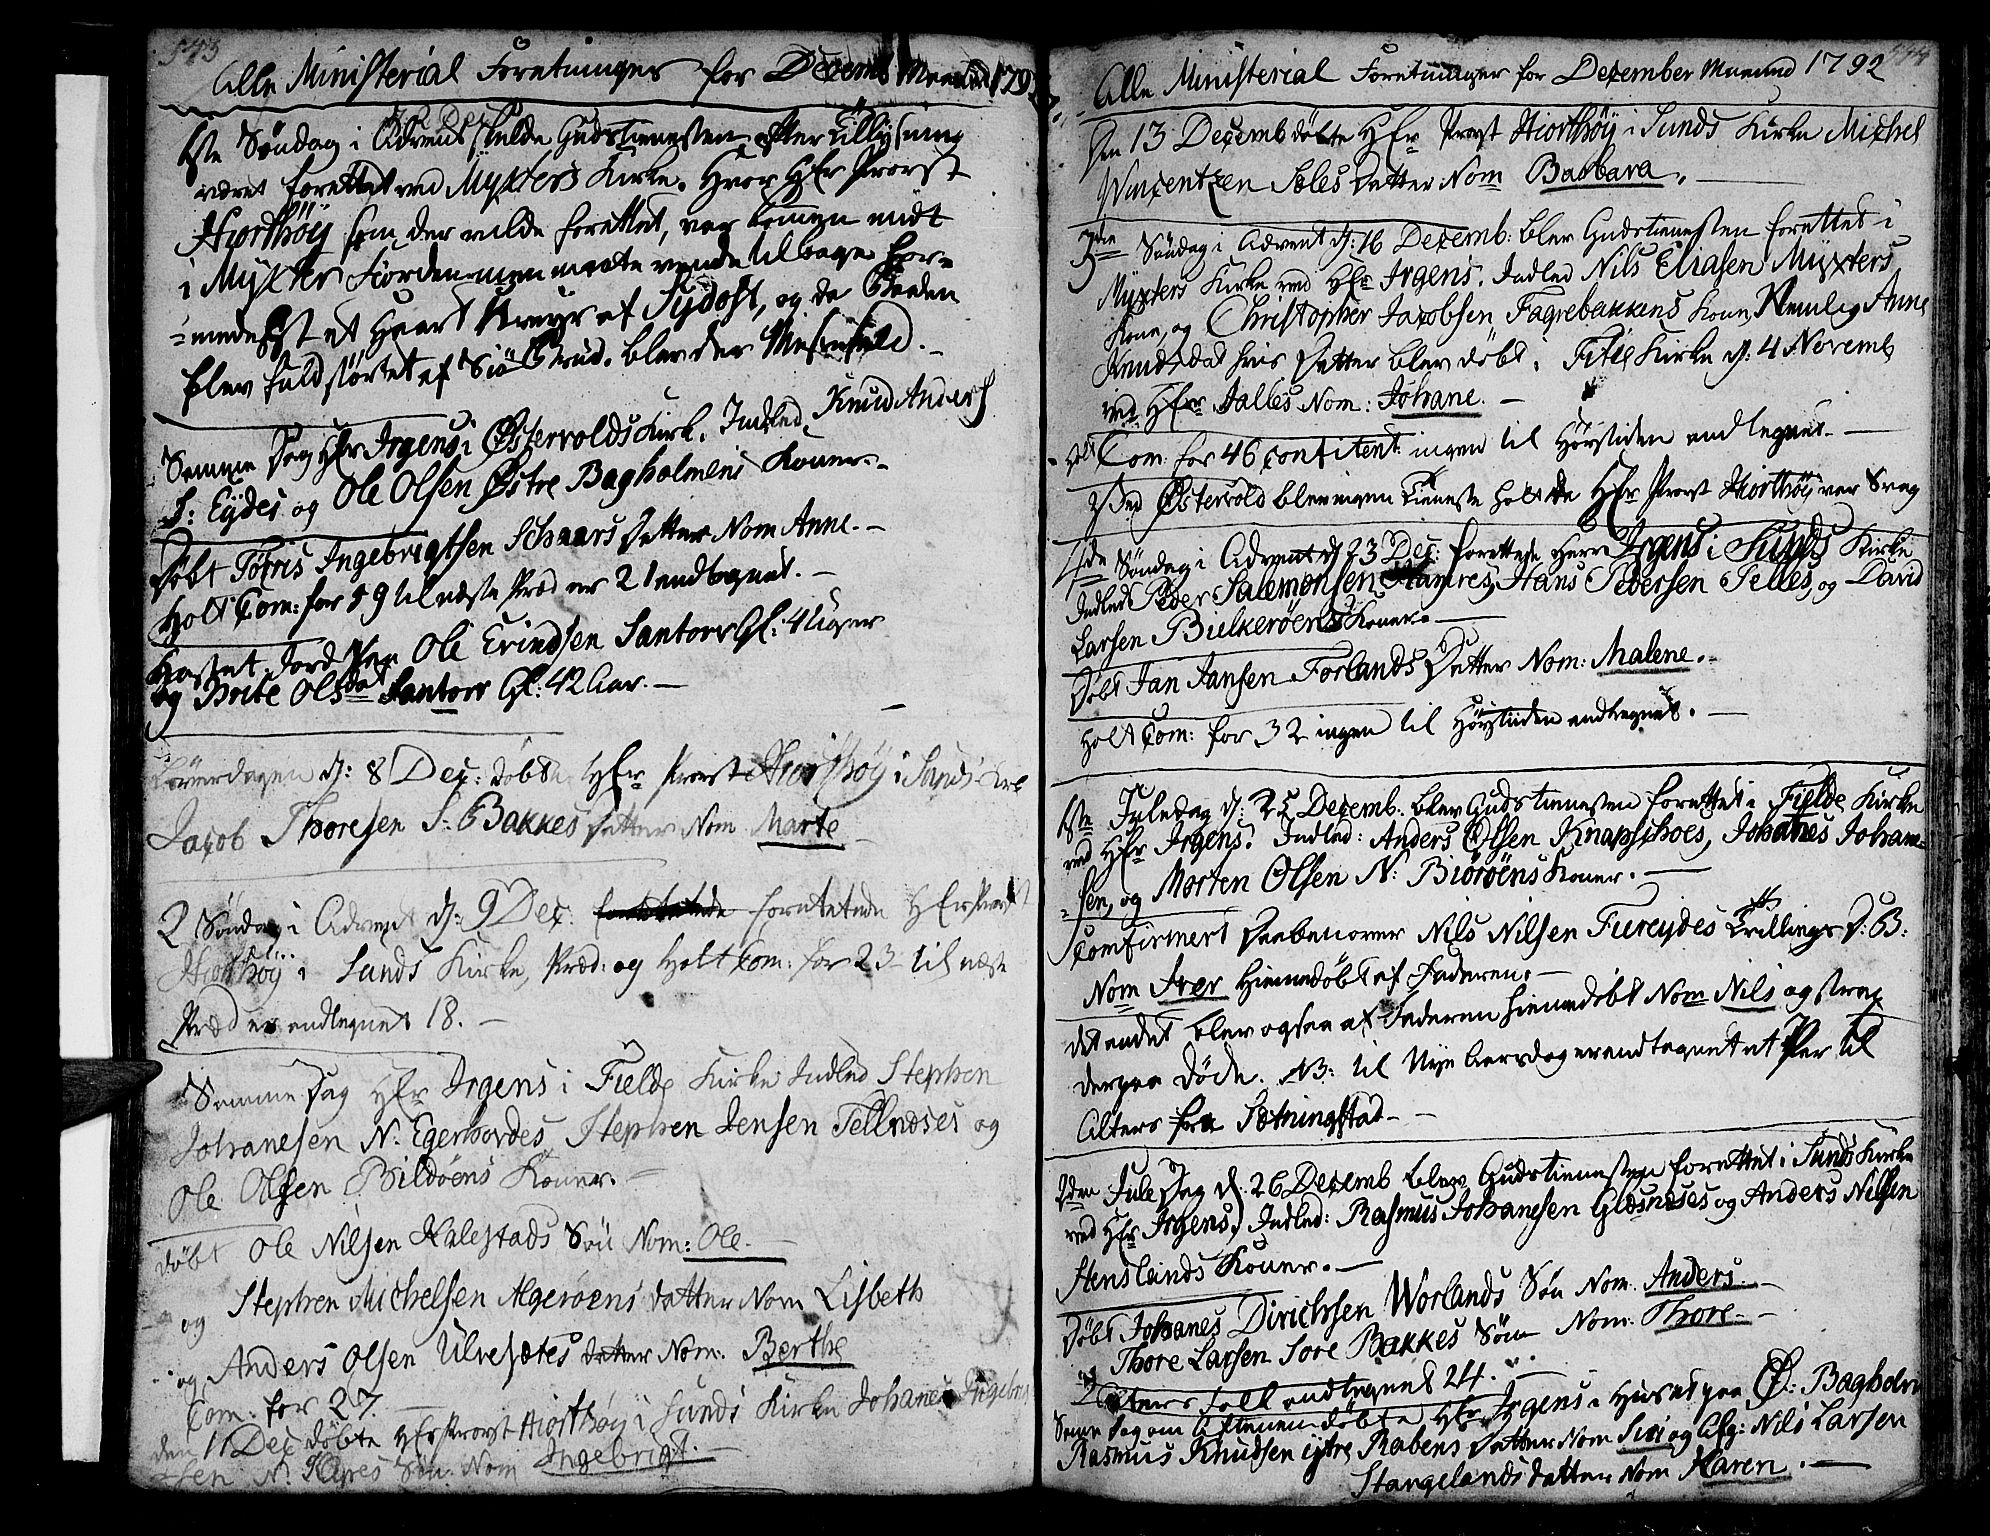 543
Alle Ministerial Forretninger for Decemb Maaned 179
1ste Søndag i Advent skulde Gudstienesten efter Tillysning
været forettet ved Myxters Kirke. Hvor HEr Provst
Hiorthöÿ som der vilde forettet, var kommen midt
i Myxter Fiorden men maatte vende tilbage for-
=medelst et haart Kryys af Sydost, og da Baaden
blev fuld stÿrtet af Siö Brud. blev der Messefald.
Samme Dag HEr Irgens i Østervolds Kirk. Indled. Knud Anders
S: Eÿdes og Ole Olsen Østre Bagholmens Koner.-
Döbt Toÿris Ingebrigtsen Schaars Datter Nom Anne.-
Holt Com: for 59 til næste Præd er 21 andtegnet.-
Kastet Jord Paa Ole Erindsen Santorr Gl: 4 Uger
og Brite Olsdat Santorr Gl: 42 Aar.-
Löverdagen d: 8 Dec: döbt HEr Provst Hiorthöÿ i Sunds Kirk
Jacob Thoresen S: Bakkes Datter Nom. Marte
2 Søndag i Advent d: 9 Dec: forettede HEr Provst
Hiorthöÿ i Sunds Kirke, Præd: og Holt Com: for 23 til næste
Præd er andtegnet 18.-
Samme Dag HEr Irgens i Fielde Kirke Indled Stephen
Johanesen N. Egerhordes, Stephen Jensen Tellnæses og
Ole Olsen Bildöens Koner.-
döbt Ole Nilsen Kalestads Sön Nom: Ole.-
og Stephen Michelsen Algeröens datter Nom Lisbeth
og Anders Olsen Ulvesætes datter Nom: Berthe
Com. for 27.
den 11 Dec döbte HEr Provst Hiorthöÿ i Sunds Kirke Johanes Ingebrig
sen N. Söon Nom Ingebrigt.-
544
Alle Ministerial Forretninger for December Maaned 1792
Den 13 Decemb döbte HEr Provst Hiorthöÿ i Sunds Kirke Michel
Wincentzen Soles Datter Nom Barbara.
3die Söndag i Advent d: 16 Decemb: blev Gudstienesten forettet i
Myxters Kirke ved HEr Irgens. Indled Nils Eliasen Myxters
Kone, og Christopher Jacobsen Fagrebakkens Kone, Nemlig Anne
Knudsdat hvis Datter blev döbt i Title Kirke d: 4 Novemb
ved HEr Dalles Nom: Johane.-
Holt Com: for 46 confitent: ingen til Höytiden andtegnet.-
Ved Østervold blev ingen Tieneste holt da HEr Provst Hiorthöÿ var Svag
4de Söndag i Advent d 23 Dec: forettede Herr Irgens i Sunds Kirke
Indledt Peder Salemonsen Hamres, Hans Pedersen Telles, og David
Larsen Bulkeröens Koner.-
Döbt Jan Jansen Forlands Datter Nom: Malene.-
Holt Com: for 32 ingen til Höytiiden andtegnet.-
1ste Juledag d: 25 Decemb. blev Gudstienesten forettet i Fielde Kirke
ved HEr Irgens. Indled: Anders Olsen Knapschoes, Johanes Johane-
=sen, og Morten Olsen N: Biöröens Koner.-
Confirmert Daaben over Nils Nilsen Fureydes Trillings D: B:
Nom Iver Hiemedöbt af Faderen.-
det andet blev ogsaa af Faderen hiemedöbt Nom Nils og strax
derpaa döde. NB: til Nye Aarsdag er andtegnet et Par til
Alters fra Sætningstad-
2den Jule Dag d. 26 Decemb blev Gudstienesten forettet i Sunds Kirke
ved HEr Irgens, Indled: Rasmus Johanesen Glæsnæses og Anders Nilsen
Stenslands Koner.-
döbt Johanes Dirichsen Worlands Sön Nom. Anders.-
og Thore Larsen Sore Bakkes Sön Nom: Thore.-
Alters folk andtegnet 24.-
Same Dag om Aftenen döbte HEr Irgens i Huset paa Ø: Bagholm
Rasmus Knudsen ÿtre Rabens Datter Nom Siri og Afg: Nils Larsen
Stangelands datter Nom Karen.-